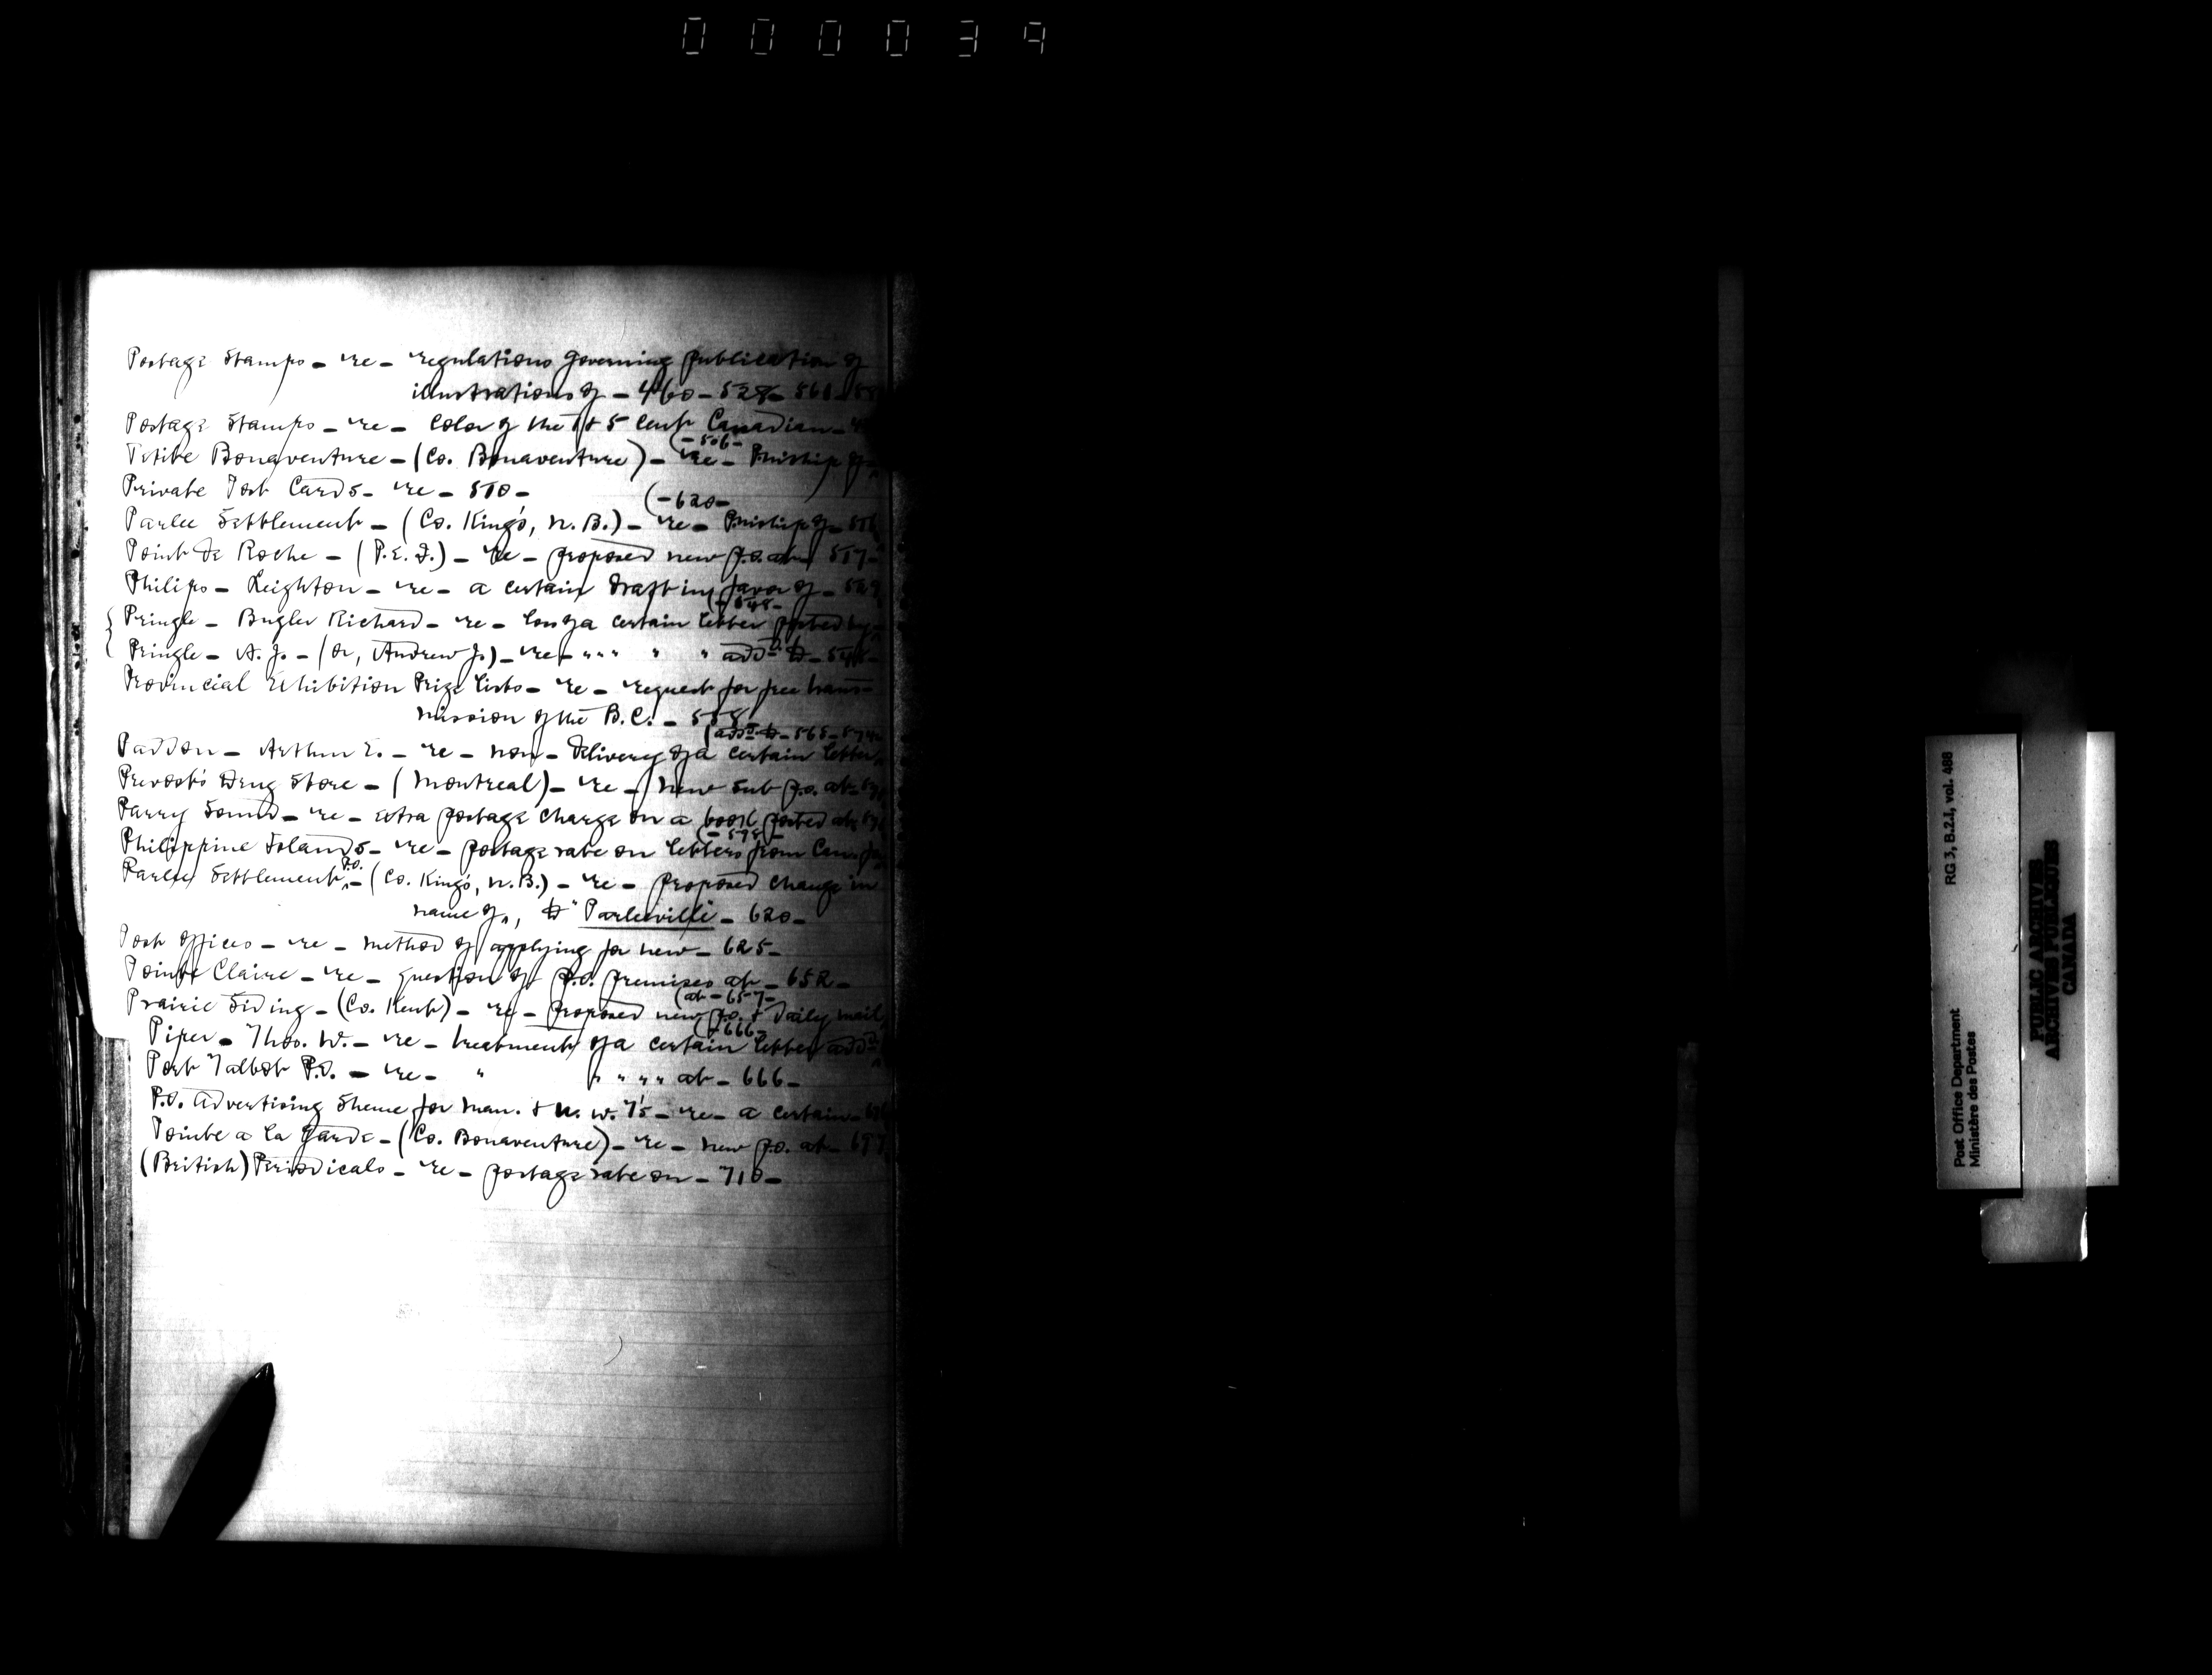 000039
Postage Stamps - re - regulations governing publication of
illustrations of - 460 - 528 - 561 -
Postage Stamps - re - Color of the 1 & 5 cent Canadian -
(- 506 -
Petite Bonaventure - (Co. Bonaventure) - re - Pmship of -
Private Post Cards - re - 510 -
(- 620 -
Parlee Settlement - (Co. King's, N.B.) - re - Pmship of -
Point de Roche - (P.E.I.) - re - proposed new p.o. at - 517 -
Philips - Leighton - re - a certain draft in favor of - 529
(- 548 -
Pringle - Bugler Richard - re - loss of a certain letter posted by -
Pringle - A. J. - (or, Andrew J.) - re - " " " " " add'd to - 548 -
Provincial Exhibition Prize Lists - re - request for free trans-
mission of the B.C. - 558
(add'd to - 565 - 574 -
Paddon - Arthur E. - re - non-delivery of a certain letter
Prevost's Drug Store - (Montreal) - re - new sub p.o. at -
Parry Sound - re - extra postage charge on a book posted at -
(- 598 -
Philippine Islands - re - postage rate on letters from Can. for
Parlee Settlement P.O. - (Co. King's, N.B.) - re - proposed change in
name of, to "Parleeville - 620 -
Post Offices - re - method of applying for new - 625 -
Pointe Claire - re - question of p.o. premises at - 652 -
(at - 657 -
Prairie Siding - (Co. Kent) - re - proposed new p.o. & daily mail
(- 666 -
Piper - Thos. W. - re - treatment of a certain letter add'd
Port Talbot P.O. - re - " " " " " at - 666 -
P.O. Advertising Sheme for Man. & N.W. T's - re - a certain -
Pointe a la Garde - (Co. Bonaventure) - re - new p.o. at - 697
(British) Periodicals - re - postage rate on - 710 -
RG 3, B.2.1, vol. 488
Post Office Department
Ministère des Postes
PUBLIC ARCHIVES
ARCHIVES PUBLIQUES
CANADA